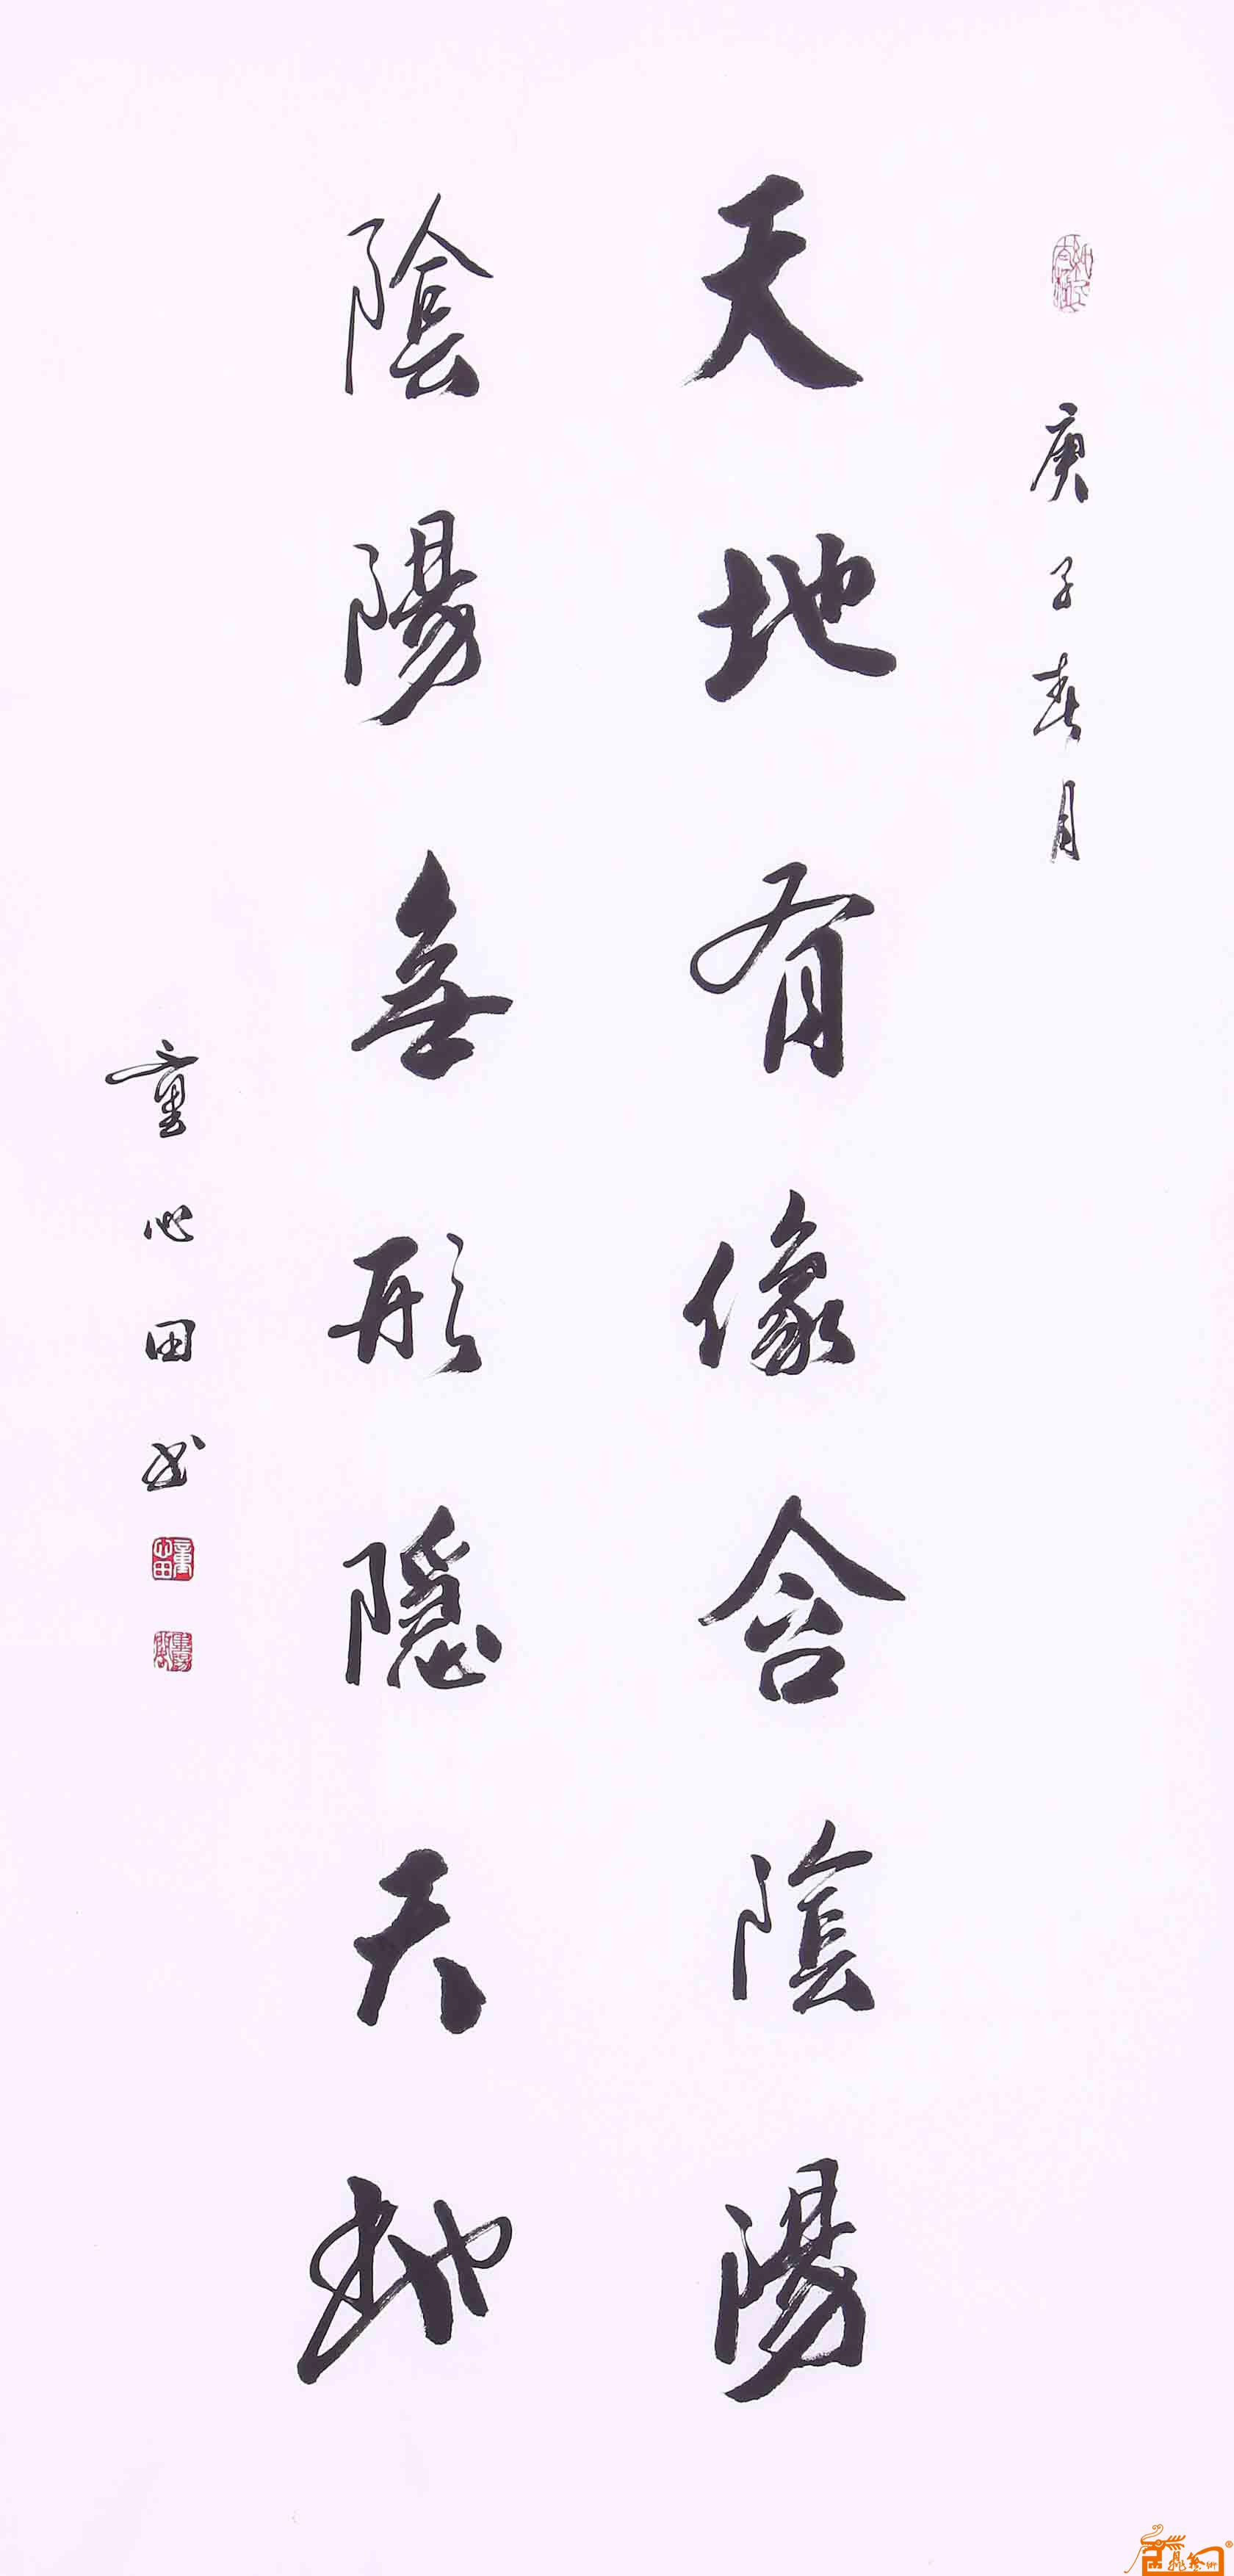 庚子春月
天地有像含陰陽
陰陽無形隱天地
童心田书